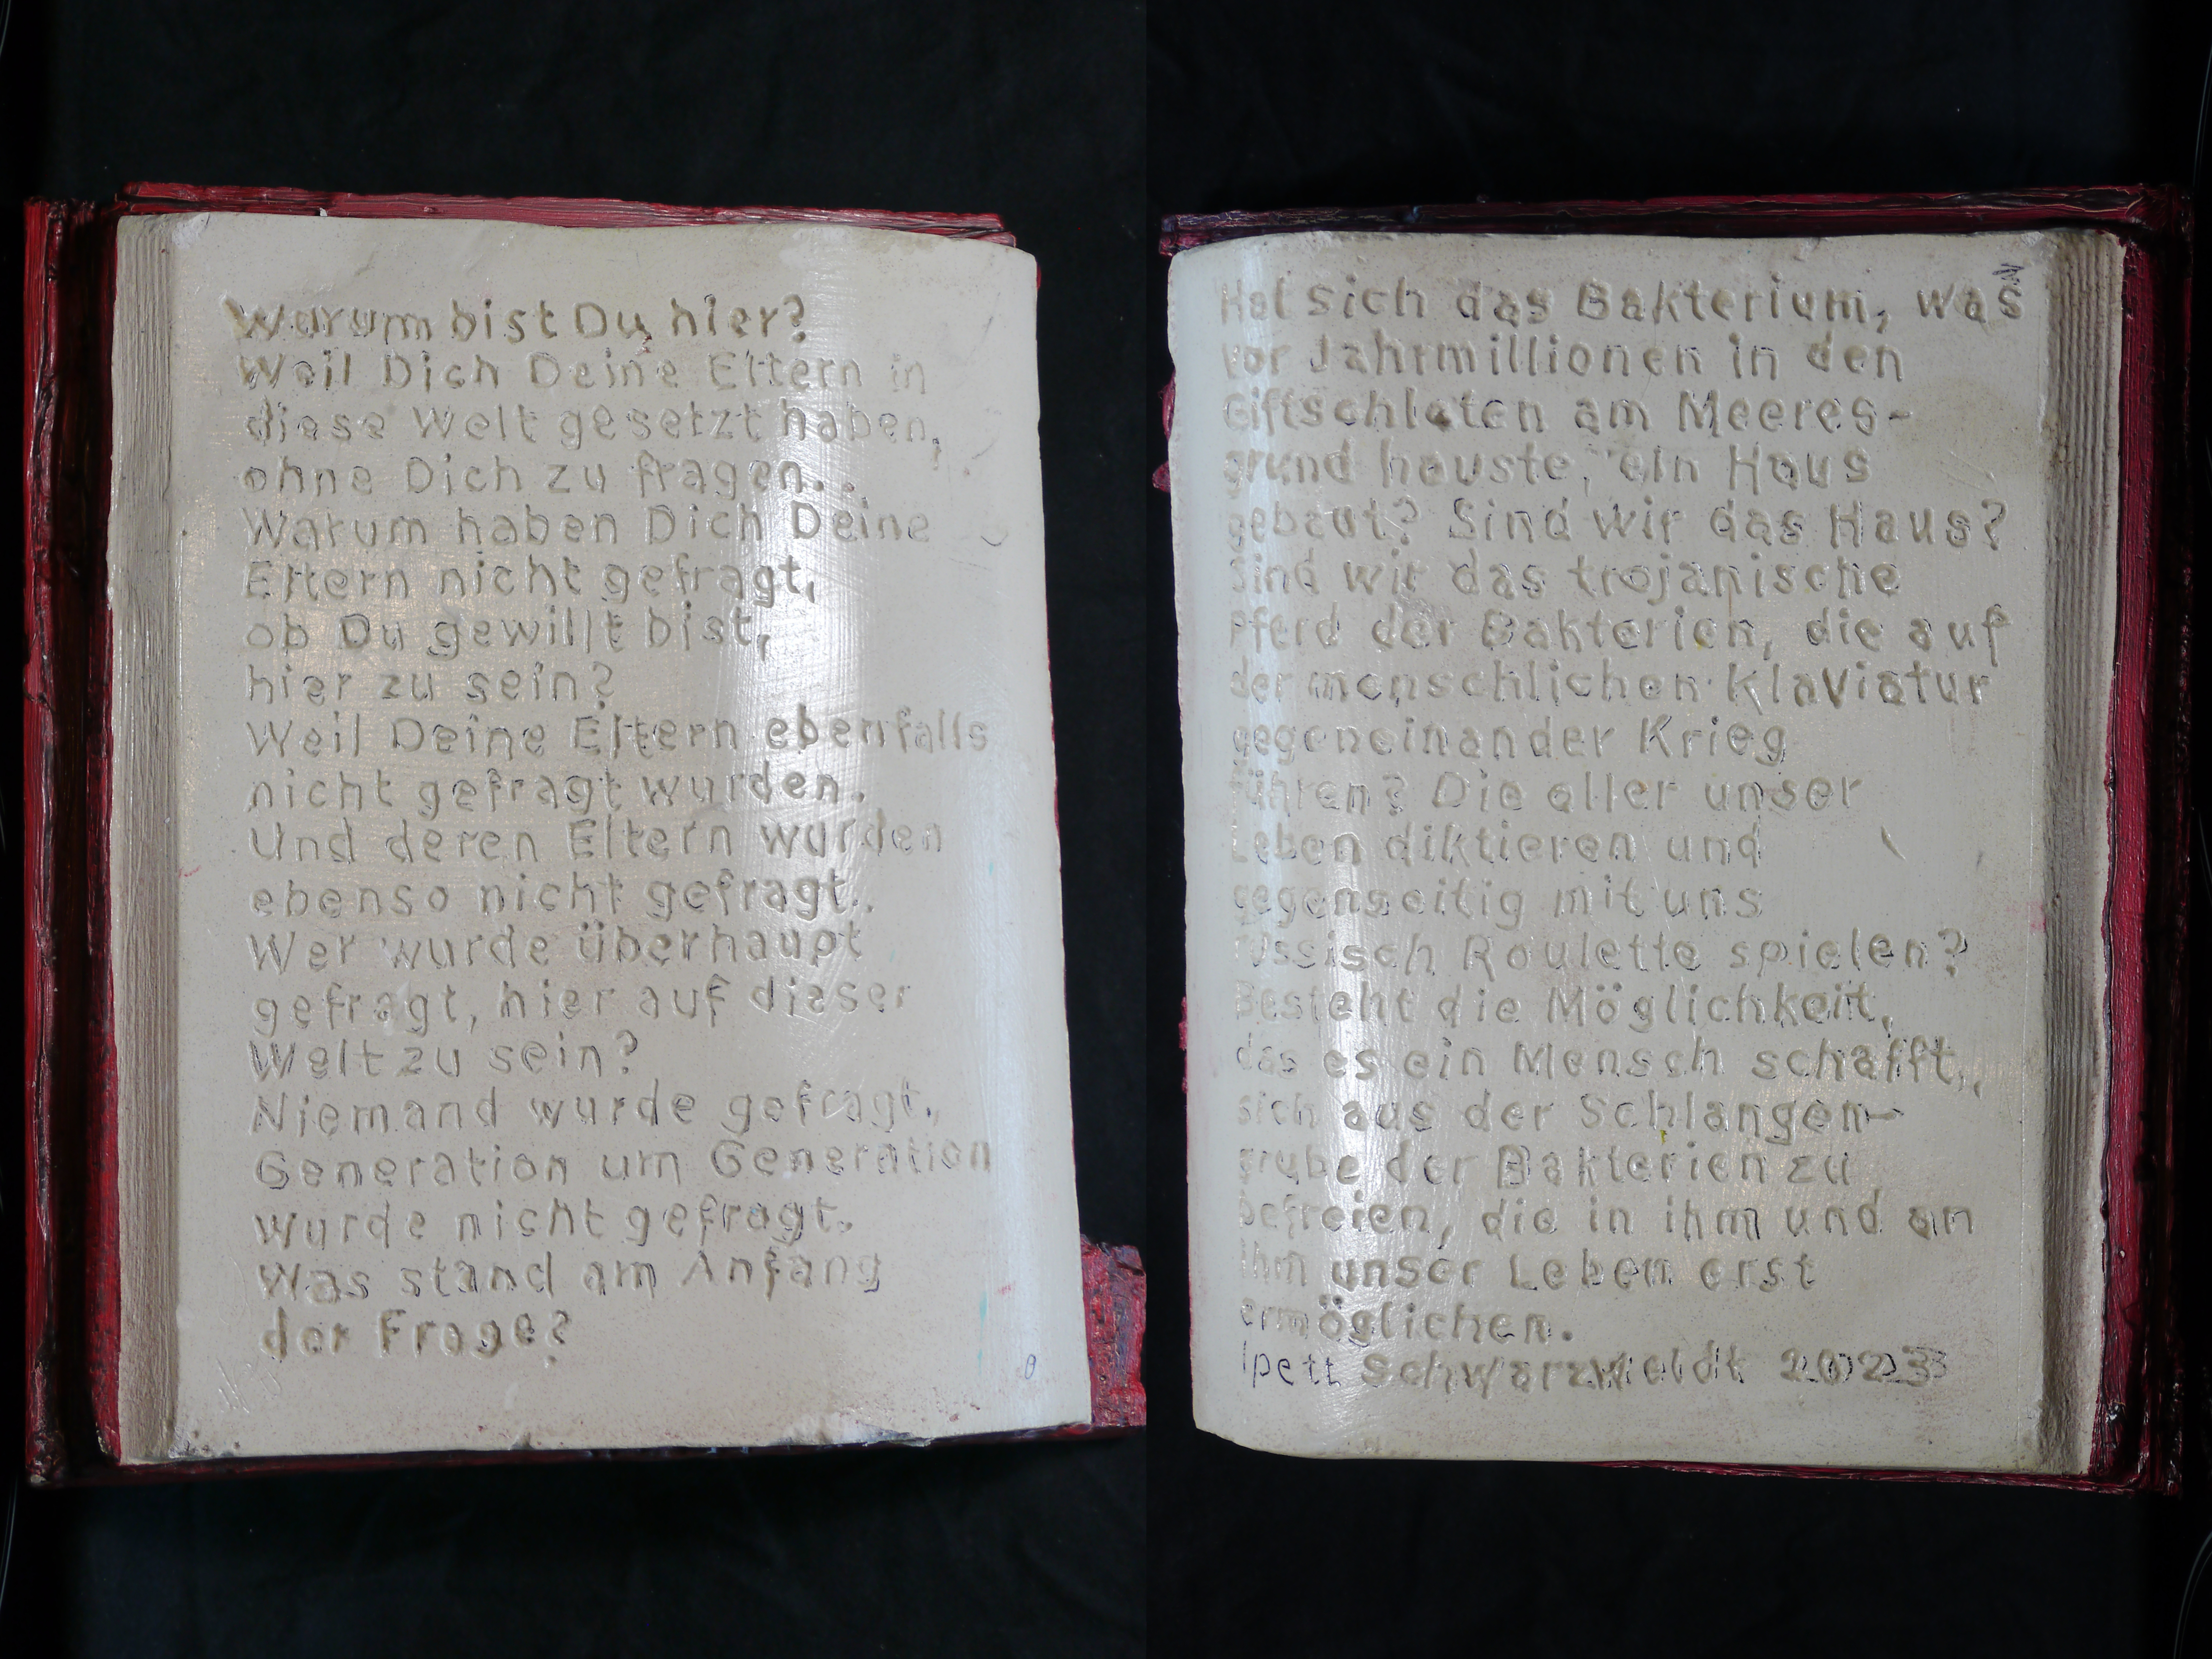 Warum bist Du hier?
Weil Dich Deine Eltern in
diese Welt gesetzt haben,
ohne Dich zu fragen.
Warum haben Dich Deine
Eltern nicht gefragt,
ob Du gewillt bist,
hier zu sein?
Weil Deine Eltern ebenfalls
nicht gefragt wurden.
Und deren Eltern wurden
ebenso nicht gefragt.
Wer wurde überhaupt
gefragt, hier auf dieser
Welt zu sein?
Niemand wurde gefragt.
Generation um Generation
wurde nicht gefragt.
Was stand am Anfang
der Frage?
Hat sich das Bakterium, was
vor Jahrmillionen in den
Giftschloten am Meeres-
grund hauste, ein Haus
gebaut? Sind wir das Haus?
Sind wir das trojanische
Pferd der Bakterien, die auf
der menschlichen Klaviatur
gegeneinander Krieg
führen? Die aller unser
Leben diktieren und
gegenseitig mit uns
russisch Roulette spielen?
Besteht die Möglichkeit,
das es ein Mensch schafft,
sich aus der Schlangen-
grube der Bakterien zu
befreien, die in ihm und an
ihm unser Leben erst
ermöglichen.
Ipett 2023